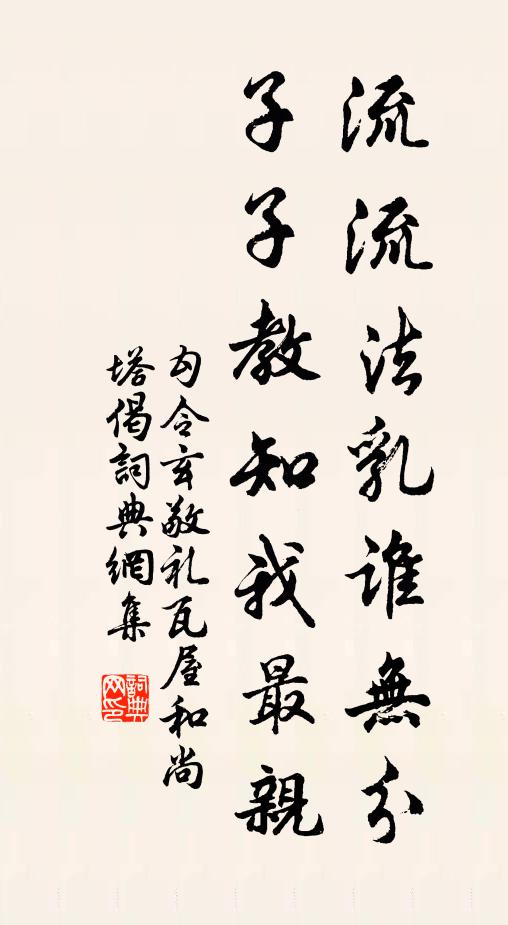 流流法乳誰無分
子子教知我最親
勾令玄敬礼瓦屋和尚
塔偈詞典網集
詞典网印